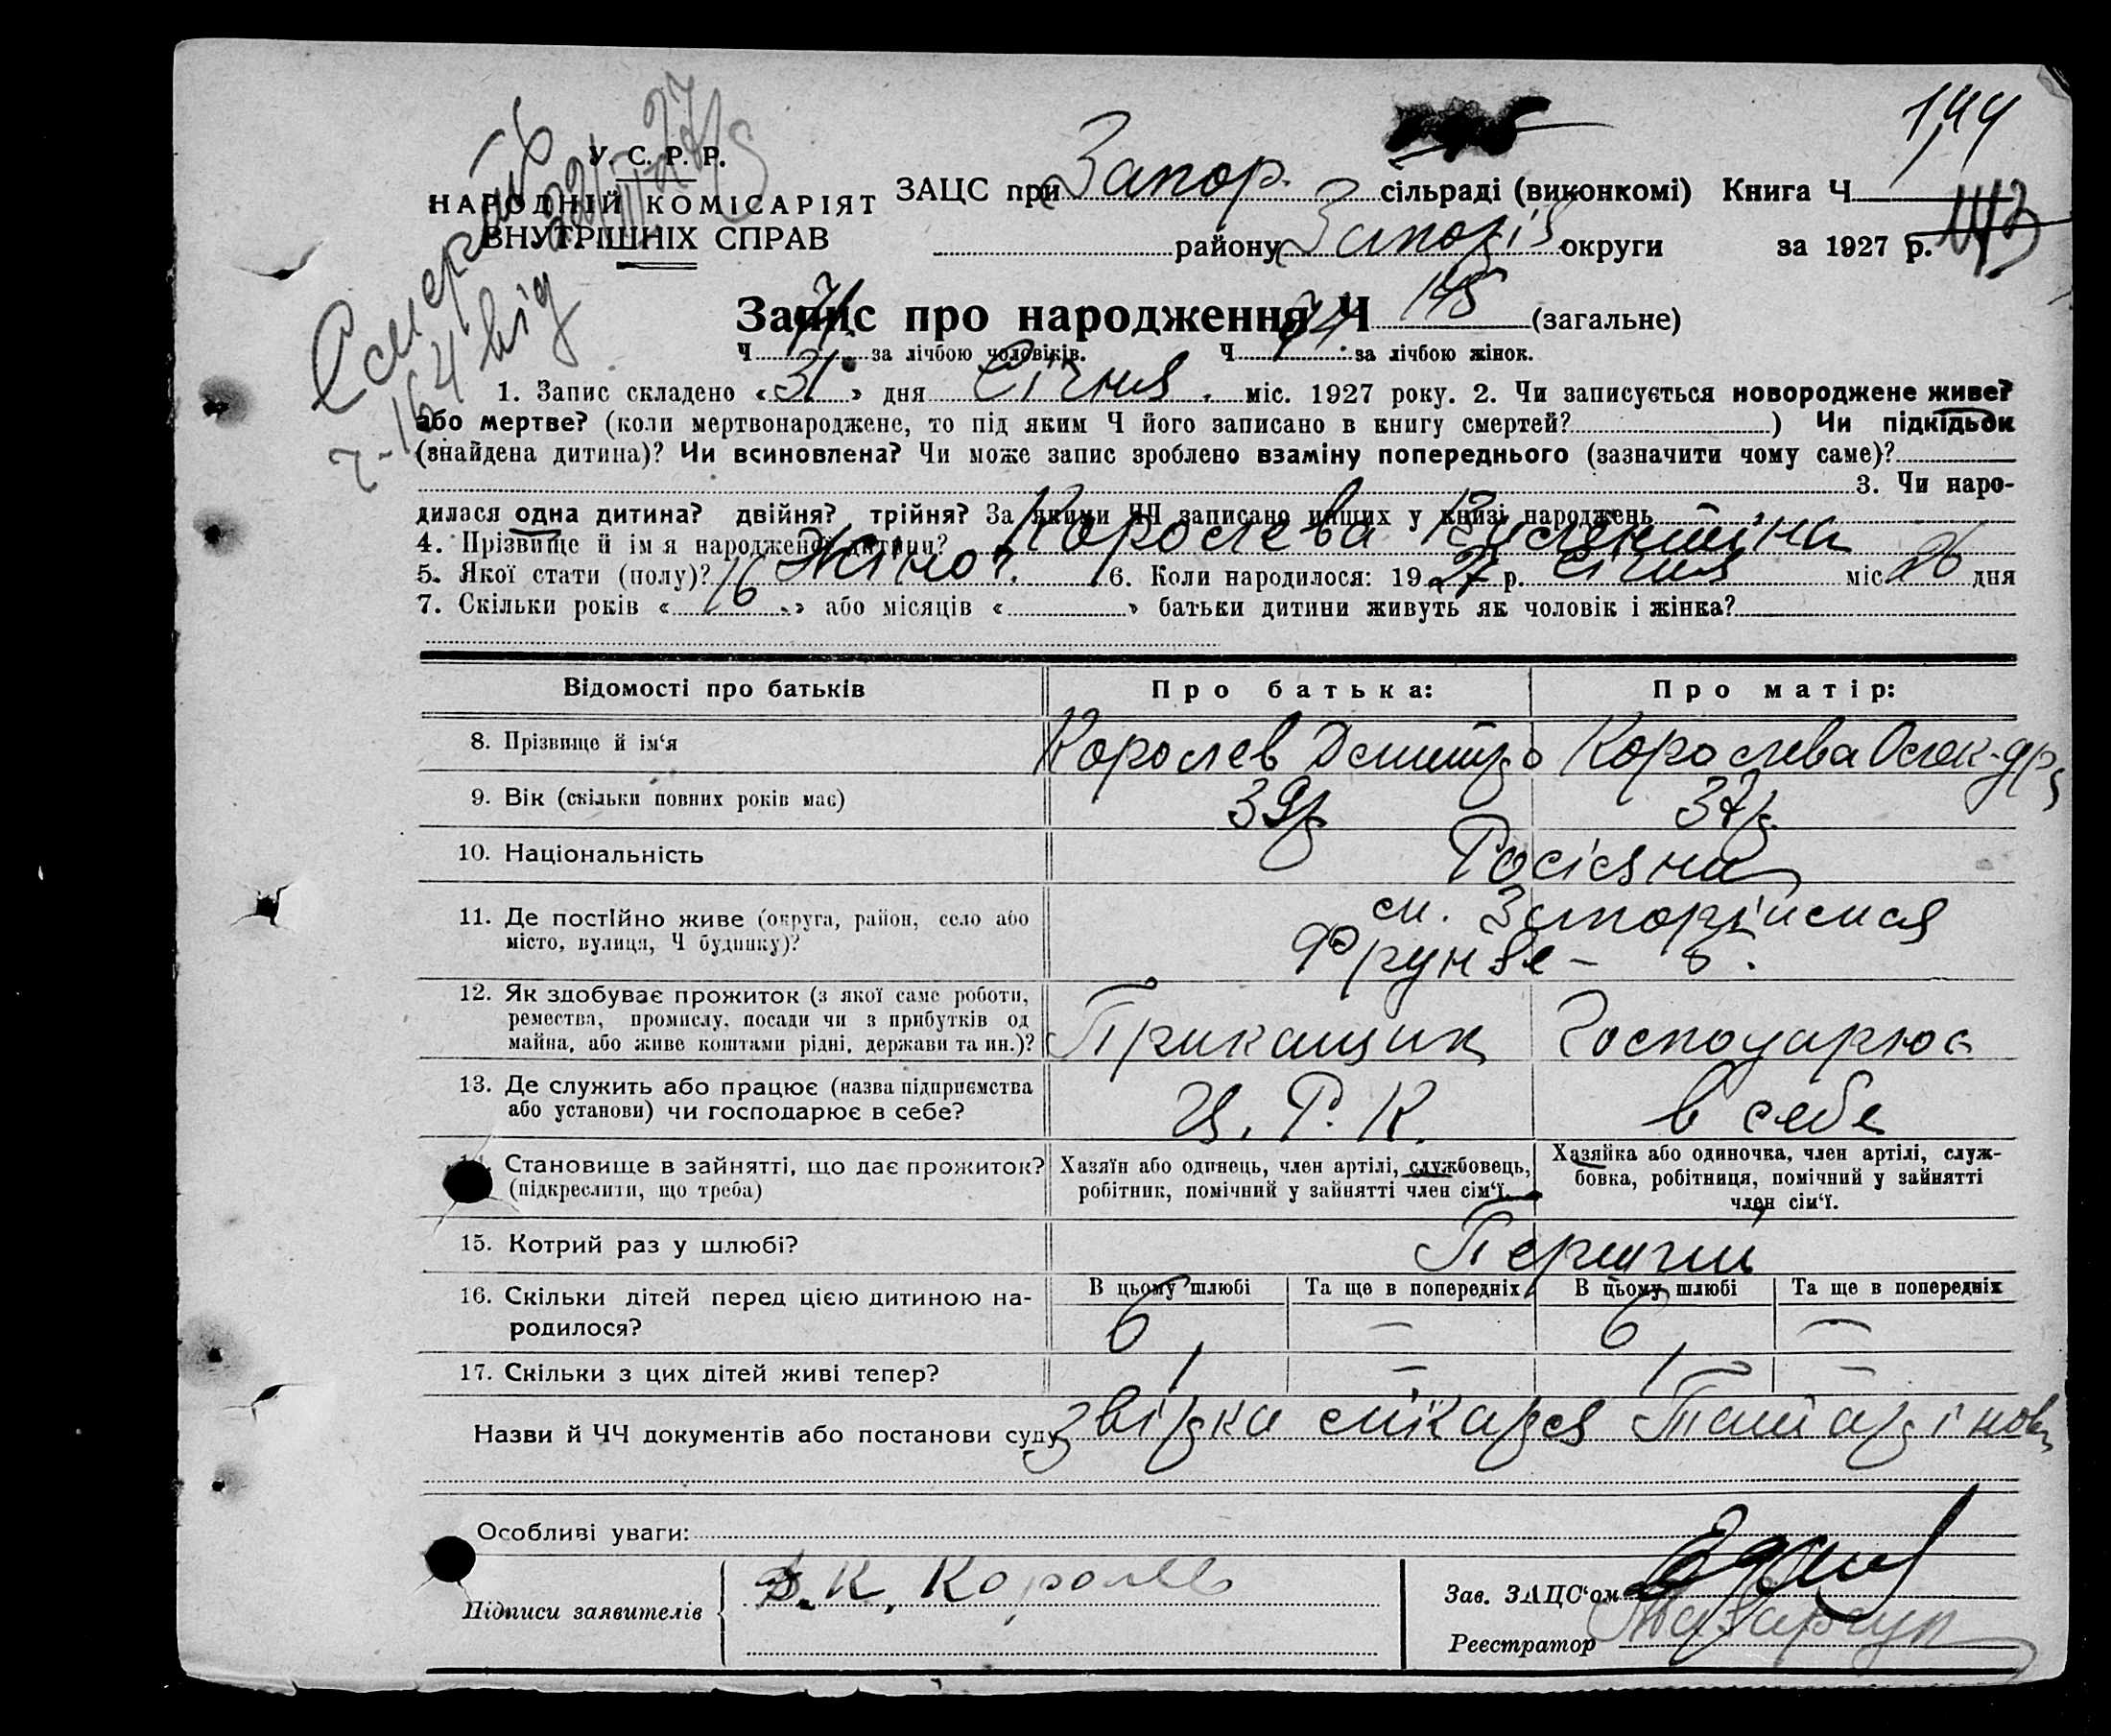 194
У. С. Р. Р.
НАРОДНІЙ КОМІСАРІЯТ
ВНУТРІШНІХ СПРАВ
ЗАЦС при Запор. сільраді (виконкомі) Книга Ч
району Запоріз округи за 1927 р. 143
Смерть
ч-164 від 22/III-27 р
Запис про народження Ч 145 (загальне)
Ч 71 за лічбою чоловіків. Ч 74 за лічбою жінок.
1. Запис складено «31» дня Січня міс. 1927 року. 2. Чи записується новороджене живе?
або мертве? (коли мертвонароджене, то під яким Ч його записано в книгу смертей? ) Чи підкідьок
(знайдена дитина)? Чи всиновлена? Чи може запис зроблено взаміну попереднього (зазначити чому саме)?
3. Чи наро-
дилася одна дитина? двійня? трійня? За якими ЧЧ записано инших у книзі народжень
4. Прізвище й ім я народженої дитини? Королева
5. Якої стати (полу)? Жіноч. 6. Коли народилося: 1927 р. січня міс. 26 дня
7. Скільки років «16» або місяців « » батьки дитини живуть як чоловік і жінка?
Відомості про батьків Про батька: Про матір:
8. Прізвище й ім‘я Королев Дмитро Королева Олек-др
9. Вік (скільки повних років має) 39 р 37 р.
10. Національність Росіяни
11. Де постійно живе (округа, район, село або м. Запоріжжя
місто, вулиця, Ч будинку)? Фрунзе - 8.
12. Як здобуває прожиток (з якої саме роботи,
ремества, промислу, посади чи з прибутків од
майна, або живе коштами рідні, держави та ин.)? Прикащик Господарює
13. Де служить або працює (назва підприємства
або установи) чи господарює в себе? Ц. Р. К. в себе
14. Становище в зайнятті, що дає прожиток? Хазяїн або одинець, член артілі, службовець, Хазяйка або одиночка, член артілі, служ-
(підкреслити, що треба) робітник, помічний у зайнятті член сім‘ї. бовка, робітниця, помічний у зайнятті
член сім‘ї.
15. Котрий раз у шлюбі? Перший
16. Скільки дітей перед цією дитиною на- В цьому шлюбі Та ще в попередніх В цьому шлюбі Та ще в попередніх
родилося? 6 — 6 —
17. Скільки з цих дітей живі тепер? 1 — 1 —
Назви й ЧЧ документів або постанови суду звірка лікаря
Особливі уваги:
Підписи заявителів Д. К. Королев
Зав. ЗАЦС‘ом
Реєстратор